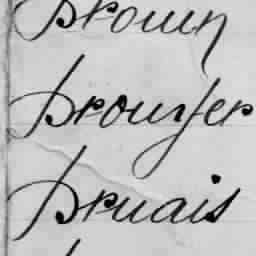 Brown
Brouyer
Bruais